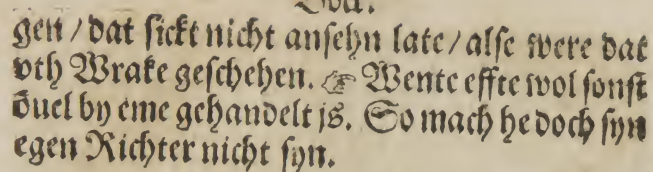 gen / dat sickt nicht ansehn late / alse were dat
vth Wrake geschehen. ☞ Wente effte wol sonst
duel by eme gehandelt js. So mach he doch syn
egen Richter nicht syn.